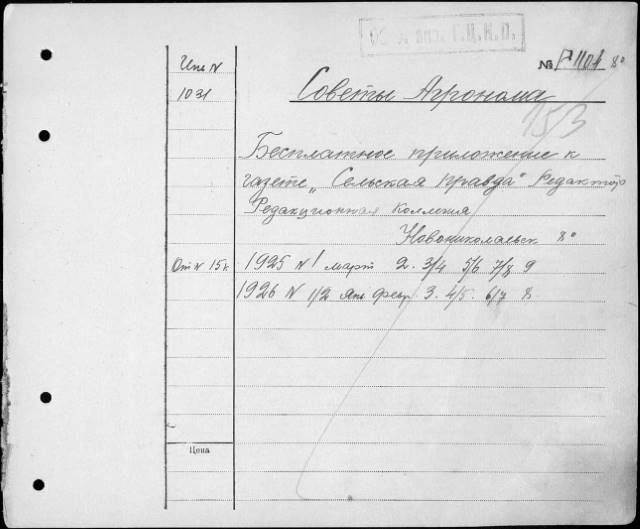 Г.Ц.К.П.
№ Р 1104 8°
Инв N
1031
Советы Агронома
15/3
Бесплатное приложение к
газете „Сельская правда" Редактор
Редакционная Коллегия
Новониколаевск 8°
От N 15к
1925 N 1 март 2. 3/4 5/6 7/8 9
1926 N 1/2 Янв февр 3. 4/5. 6/7 8.
Цена